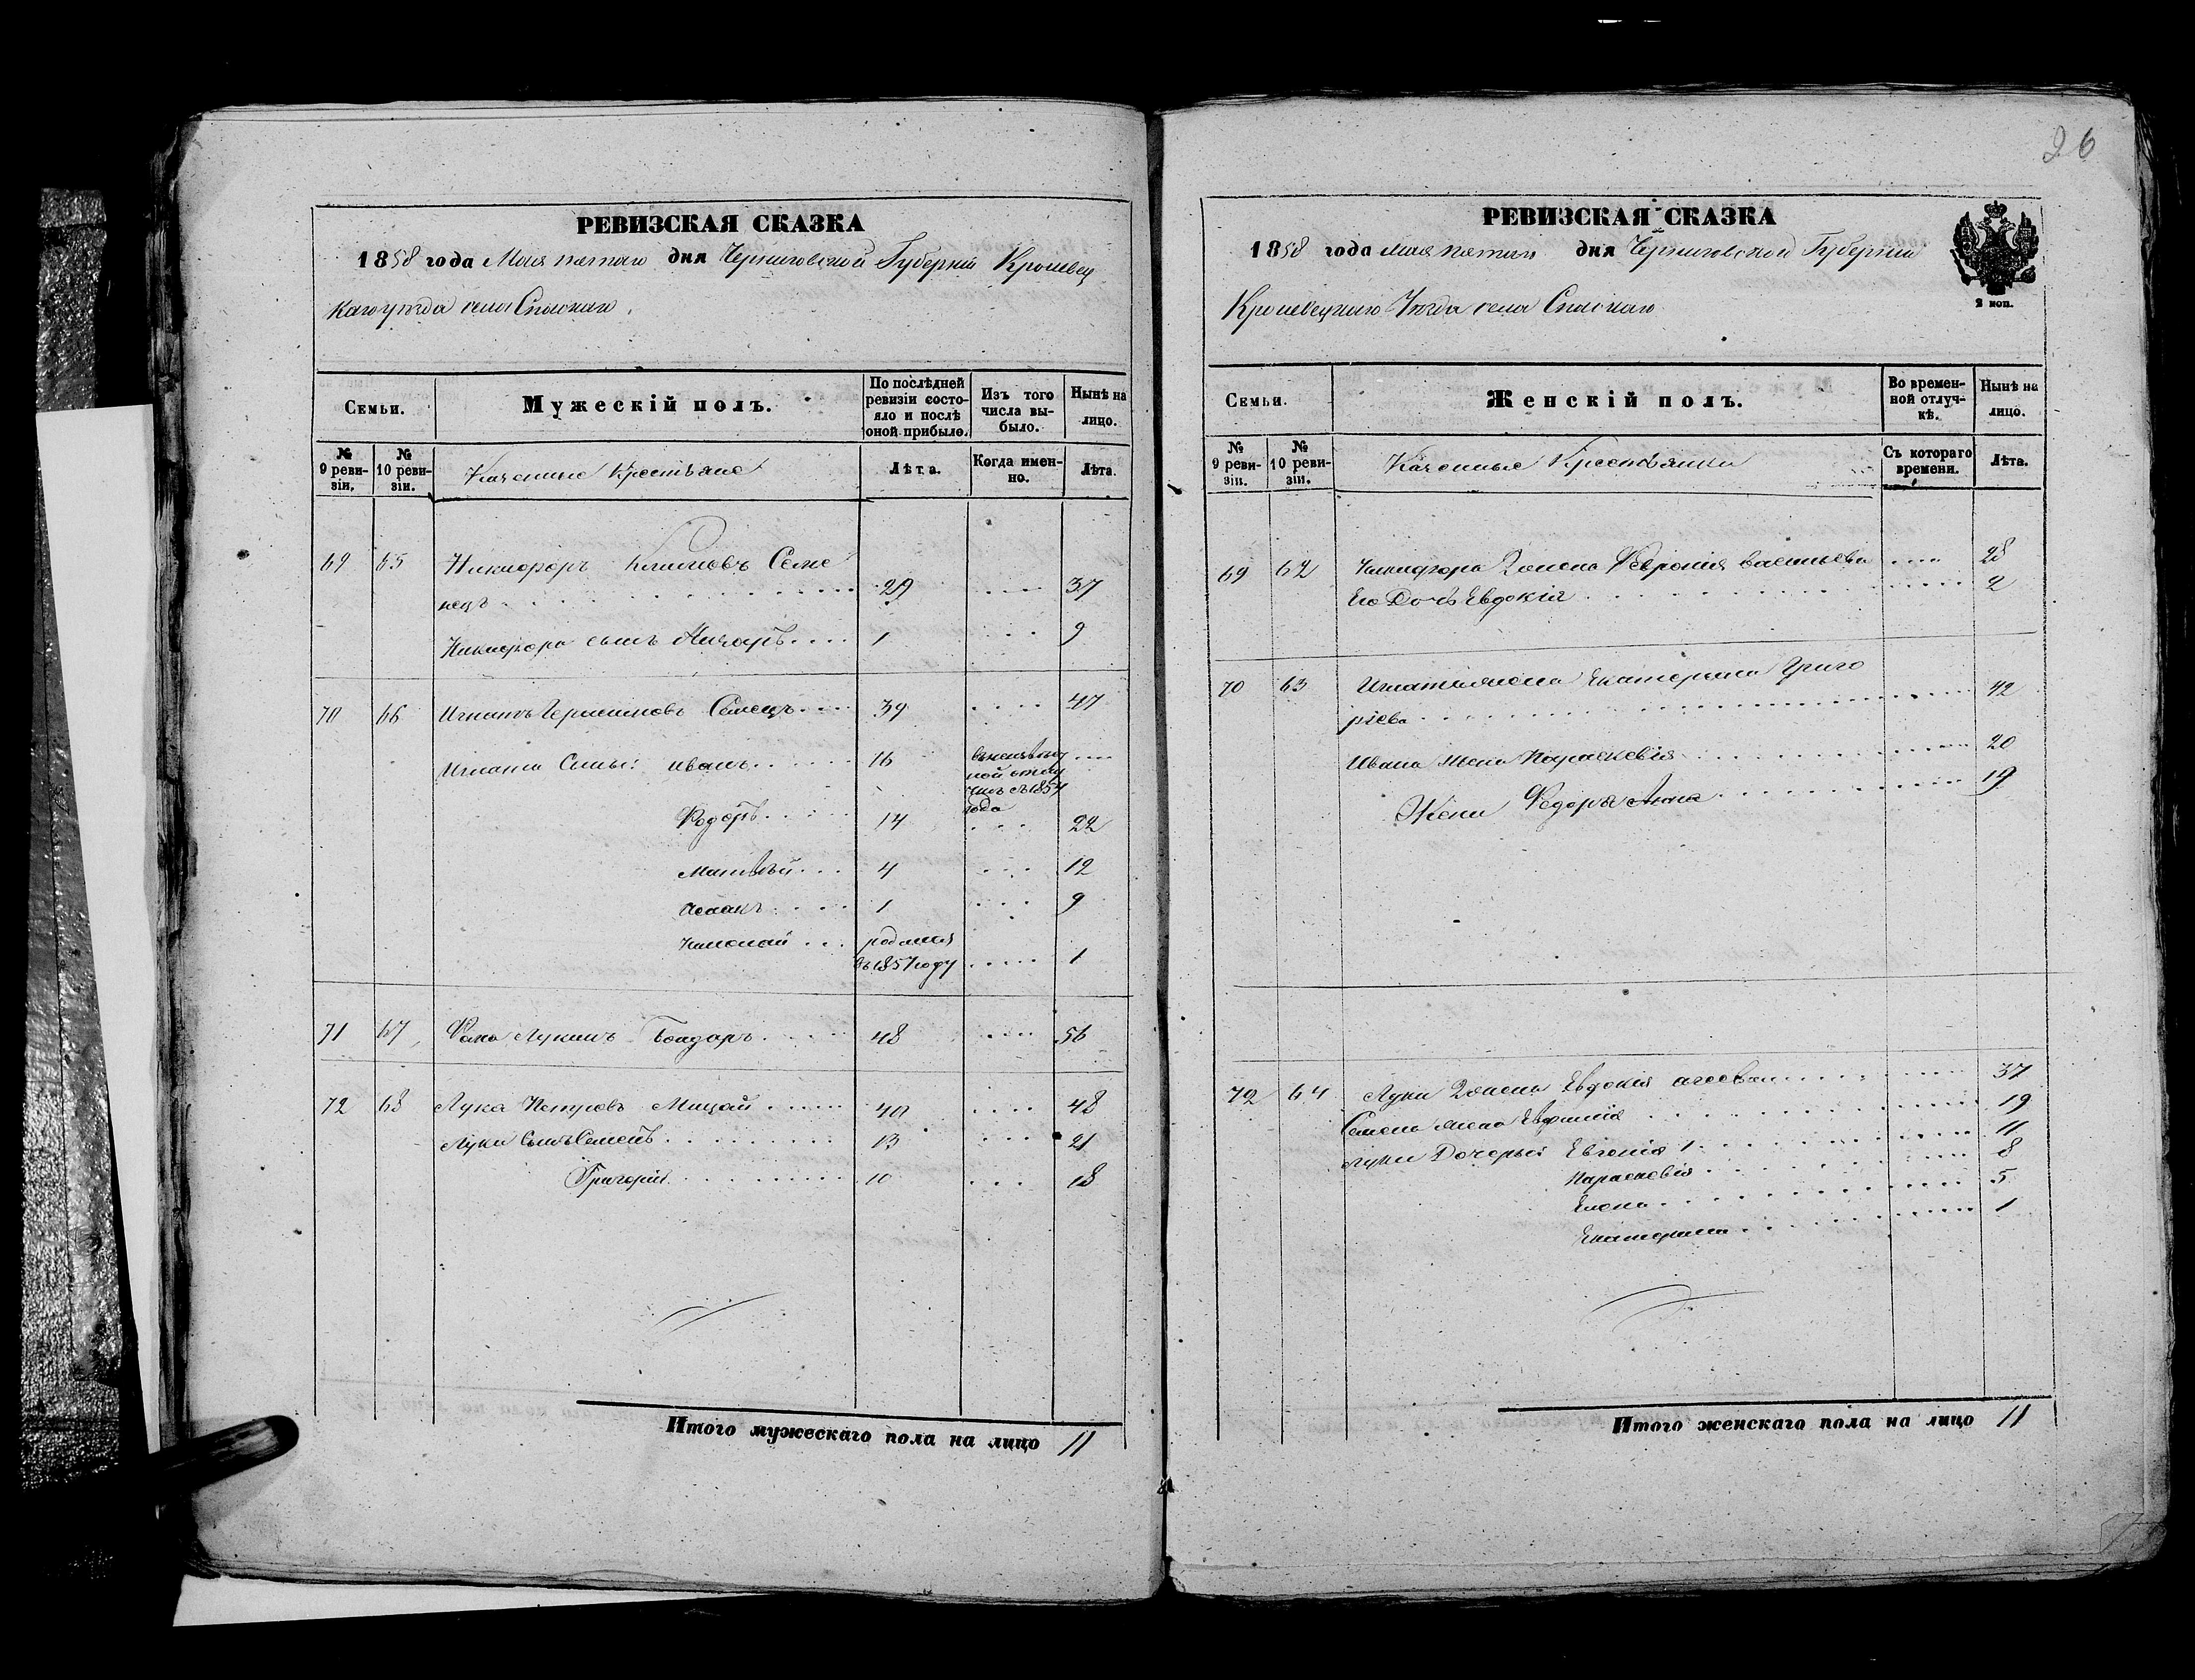 26
РЕВИЗСКАЯ СКАЗКА
1858 года Мая пятаго дня Черниговской Губерніи Кролевец
каго уѣзда села Спаскаго
Семьи.
Мужескій полъ.
По послѣдней ревизіи состояло и послѣ оной прибыло.
Изъ того числа выбыло.
Нынѣ на лицо.
№ 9 ревизіи.
№ 10 ревизіи.
Казенные Крестьяне
Лѣта.
Когда именно.
Лѣта.
69 65 Никифоръ Семе
нецъ 29 37
Никифора сынъ 1 9
70 66 Игнатъ Герасимовъ Семенецъ 39 47
Игната Сыны: Иванъ 16
1857
года
Федоръ 14 22
Матвѣй 4 12
Исаакъ 1 9
Николай родился
въ 1857 году 1
71 67 Фома Лукинъ Бондарь 48 56
72 68 Лука Петровъ Мицай 40 48
Луки Сынъ Семенъ 13 21
Григорій 10 18
Итого мужескаго пола на лицо 11
РЕВИЗСКАЯ СКАЗКА
1858 года мая пятаго дня Черниговской Губерніи
2 коп.
Кролевецкаго Уѣзда села Спаскаго
Семьи.
Женскій полъ.
Во временной отлучкѣ.
Нынѣ на лицо.
№ 9 ревизіи.
№ 10 ревизіи.
Казенные Крестьянки
Съ котораго времени.
Лѣта.
69 62 Никифора Жена Феврония Васильева 28
Его Дочь Евдокія 2
70 63 Игната жена Екатерина Григо
рієва 42
Ивана жена Параскевія 20
Жена Федора Анна 19
72 64 Луки Жена Евдокія 37
Семена жена Евфимія 19
Луки Дочерьи Евгенія 11
Параскевія 8
Елена 5
Екатерина 1
Итого женскаго пола на лицо 11